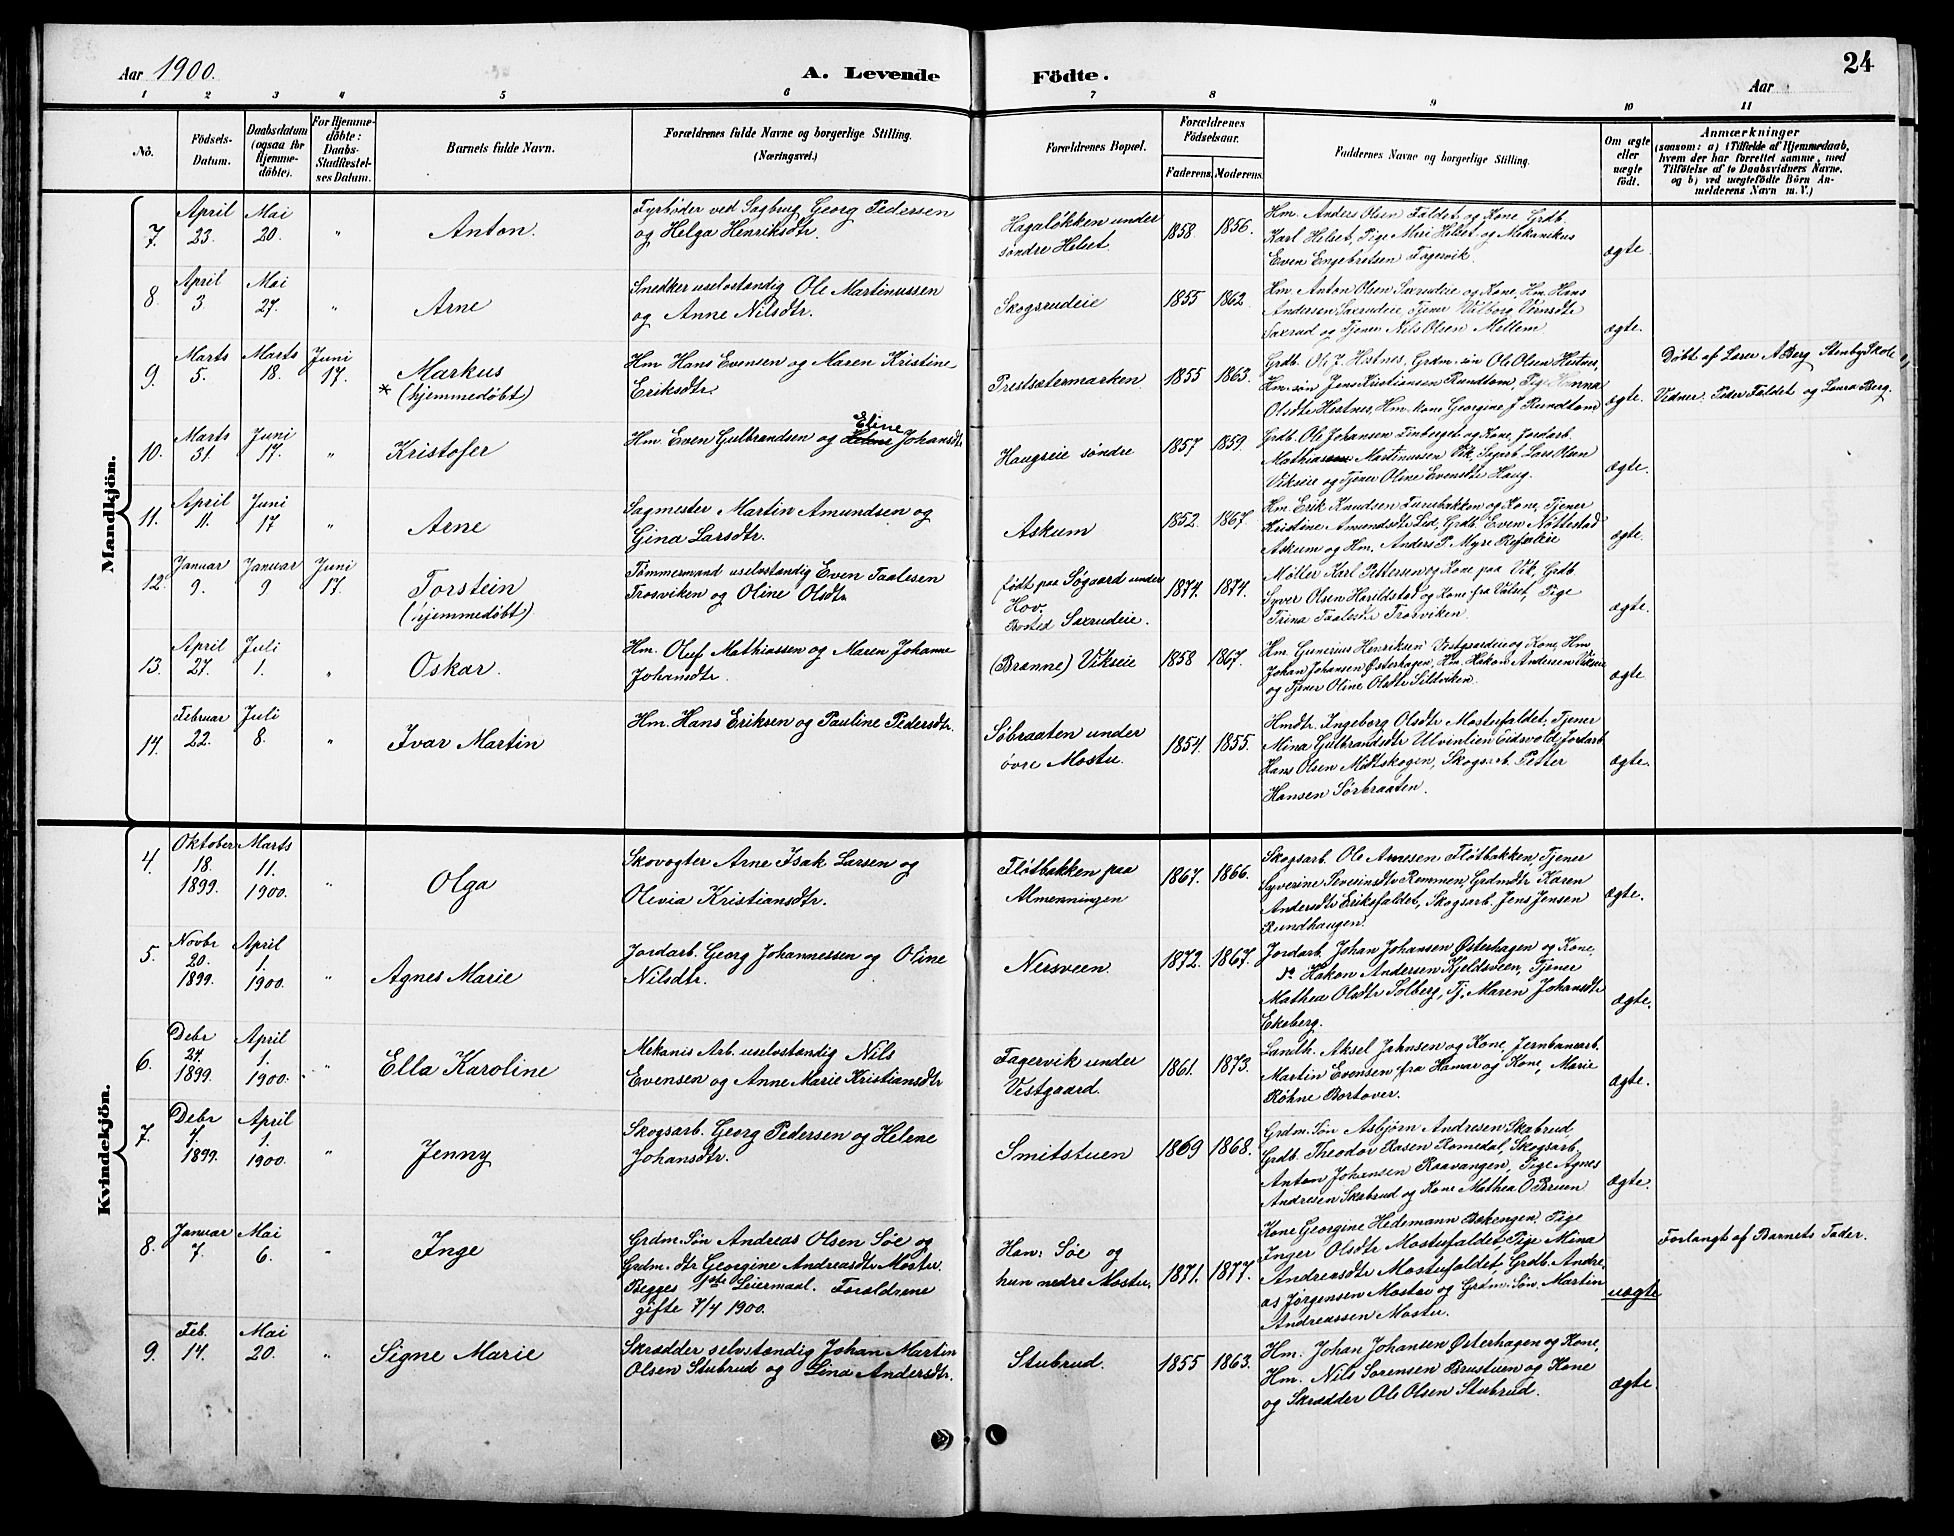 24
Aar 1900.
A. Levende Födte.
Aar
1 2 3 4 5 6 7 8 9 10 11
No.
Födsels-Datum.
Daabsdatum (ogsaa för Hjemme-döbte).
For Hjemme-döbte: Daabs-Stadfestel-ses Datum.
Barnets fulde Navn.
Forældrenes fulde Navne og borgerlige Stilling.
(Næringsvei.)
Forældrenes Bopæl.
Forældrenes Födselsaar.
Faderens. Moderens.
Faddernes Navne og borgerlige Stilling.
Om ægte eller uægte födt.
Anmærkninger
(saasom: a) i Tilfælde af Hjemmedaab,
hvem der har forrettet samme, med
Tilföielse af to Daabsvidners Navne,
og b) ved uægtefödte Börn An-
melderens Navn m. V.)
Mandkjön.
7. April 23. Mai 20. " Anton.
Fyrbøder ved Sagbrug Georg Pedersen
og Helga Henriksdtr.
Hagaløkken under
søndre Helset
1858 1856.
Hm. Anders Olsen Faldet og Kone, Grdb.
Karl Helset, Pige Mari Helset og Mekanikus
Even Engebretsen Fagervik.
ægte.
8. April 3. Mai 27. " Arne
Snedker uselvstændig Ole Martinussen
og Anne Nilsdtr.
Skogsrudeie
1855 1862.
Hm. Anton Olsen Saxrudeie og Kone, Hm. Hans
Andersen Saxrudeie, Tjener Valborg
Saxrud og Tjener Nils Olsen Mellem
ægte.
9. Marts 5. Marts 18. Juni 17. Markus
* (hjemmedøbt)
Hm Hans Evensen og Maren Kristine
Eriksdtr.
Prestsætermarken
1855 1863.
Grdb. Ole J. Hestnes, Grdm. søn Ole Olsen Hestnes,
Hm. søn Jens Kristiansen Rundtom, Pige
Olsdtr Hestnes, Hm. Kone Georgine J Rundtom
ægte.
Døbt af Lærer A Berg Stenby Skole
Vidner: Peder Faldet og Laura Berg.
10. Marts 31. Juni 17. " Kristofer
Eline
Hm. Even Gulbrandsen og Helene Johansdtr
Haugseie søndre
1857 1859.
Grdb. Ole Johansen Finberget og Kone, Jordarb.
Mathias Martinussen Vik, Lars Olsen
Vikseie og Tjener Oline Evensdtr Haug.
ægte.
11. April 11. Juni 17 " Arne
Sagmester Martin Amundsen og
Gina Larsdtr.
Askum
1852. 1867.
Hm. Erik Knudsen Furubakken og Kone, Tjener
Kristine Amundsdtr Lid, Grdb. Even Nøttestad
Askum og Hm. Anders P. Myre
ægte.
12. Januar 9. Januar 9. Juni 17. Torstein
(hjemmedøbt)
Tømmermand uselvstændig Even Taalesen
Trosviken og Oline Olsdtr
født paa Søgaard under
Hov.
Bosted Saxrudeie.
1874. 1874.
Møller Karl Pettersen og Kone paa Vik, Grdb.
Syver Olsen Harildstad og Kone fra Valset, Pige
Trina Taalesdtr Trosviken.
ægte.
13. April 27. Juli 1. " Oskar.
Hm. Oluf Mathiassen og Maren Johanne
Johansdtr.
(Brønne) Vikseie
1858 1867.
Hm. Gunerius Henriksen Vestgaardeie og Kone, Hm
Johan Johansen Østerhagen, Hm. Hakon Andersen Vikseie
og Tjener Oline Olsdtr Sildviken.
ægte
14. Februar 22. Juli 8. " Ivar Martin
Hm. Hans Eriksen og Pauline Pedersdtr.
Søbraaten under
øvre Mostu.
1854. 1855.
Hmdtr. Ingeborg Olsdtr Mostufaldet, Tjener
Mina Gulbrandsdtr Ulvinlien Eidsvold, Jordarb
Hans Olsen Midtskogen, Skogsarb. Petter
Hansen Sørbraaten.
ægte.
Kvindekjön.
4. Oktober 18. 1899. Marts 11. 1900. " Olga
Skovogter Arne Isak Larsen og
Olivia Kristiansdtr.
Fløtbakken paa
Almenningen
1867. 1866.
Skogsarb. Ole Arnesen Fløtbakken, Tjener
Syverine Severinsdtr Remmen, Grdmdtr Karen
Andersdtr Eriksfaldet, Skogsarb. Jens Jensen
Rundhaugen.
ægte.
5. Novbr 20. 1899. April 1. 1900. " Agnes Marie
Jordarb. Georg Johannessen og Oline
Nilsdtr.
Nersveen.
1872. 1867.
Jordarb. Johan Johansen Østerhagen og Kone,
do Hakon Andersen Kjeldsveen, Tjener
Mathea Olsdtr Solberg, Tj. Maren Johansdtr
Ekeberg.
ægte.
6. Debr 24. 1899. April 1. 1900. " Ella Karoline
Mekanis Arb. uselvstændig Nils
Evensen og Anne Marie Kristiansdtr
Fagervik under
Vestgaard.
1861. 1873.
Landh. Aksel Jahnsen og Kone, Jernbanearb.
Martin Evensen fra Hamar og Kone, Marie
Røhne Bortover.
ægte.
7. Debr 4. 1899. April 1. 1900. " Jenny
Skogsarb. Georg Pedersen og Helene
Johansdtr.
Smitstuen
1869 1868.
Grdm. Søn Asbjørn Andresen Skabrud
Grdb. Theodor Rasen Romedal, Skogsarb.
Anton Johansen Raavangen, Pige Agnes
Andresen Skabrud og Kone Mathea O Bruen
ægte.
8. Januar 7. Mai 6. " Inge
Grdm. Søn Andreas Olsen Søe og
Grdm. dtr Georgine Andreasdtr Mostu.
Begges 1ste Leiermaal. Forældrene
gifte 7/4 1900.
Han: Søe og
hun nedre Mostu.
1871. 1877.
Kone Georgine Hedemann Bekkengen, Pige
Inger Olsdtr Mostufaldet, Pige Mina
Andreasdtr Mostufaldet, Grdb. Andre
as Jørgensen Mostue og Grdm. Søn. Martin
Andreassen Mostu.
uægte
Forlangt af Barnets Fader.
9. Feb. 14. Mai 20. " Signe Marie
Skrædder selvstændig Johan Martin
Olsen Stubrud og Lina Andersdtr.
Stubrud.
1855 1863.
Hm. Johan Johansen Østerhagen og Kone,
Hm. Nils Sørensen Brustuen og Kone
og Skrædder Ole Olsen Stubrud.
ægte.